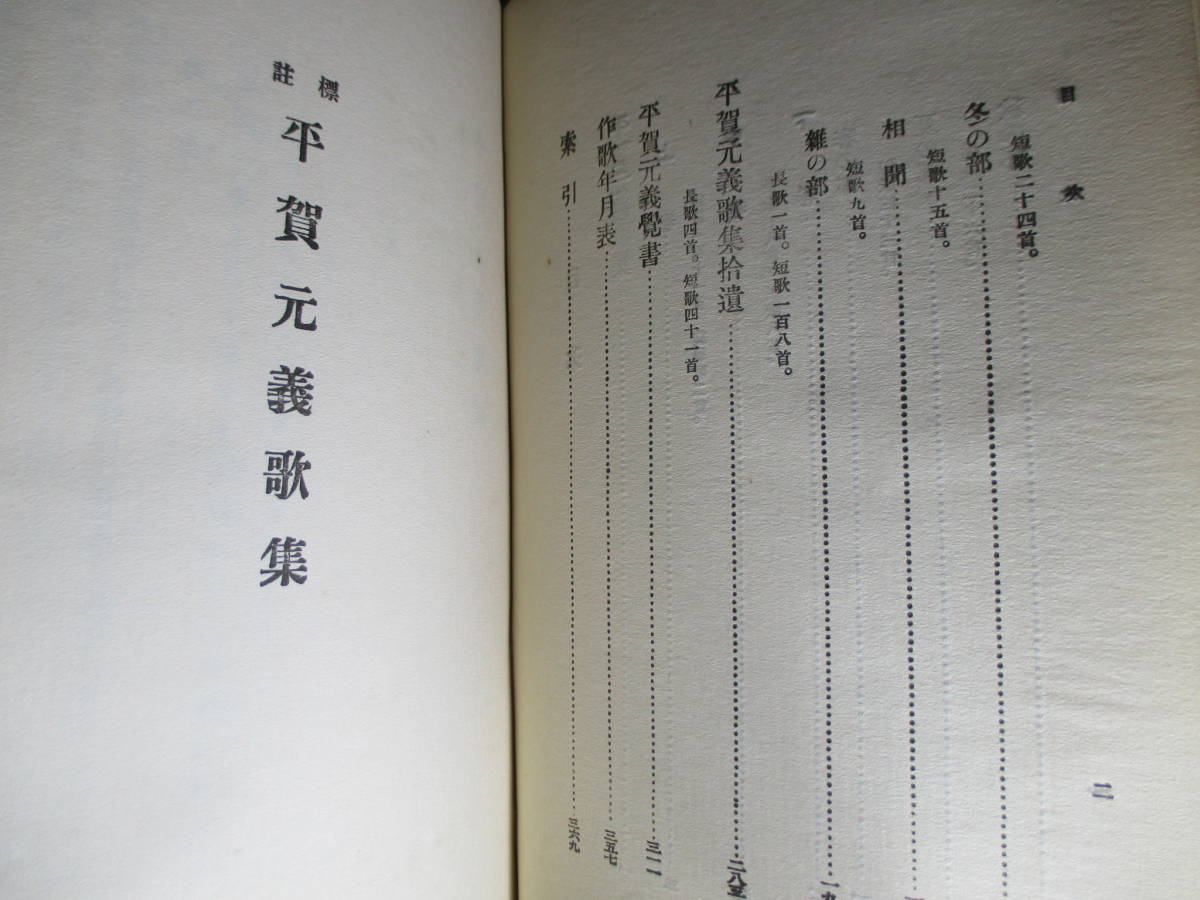 目次
二
短歌二十四首。
冬の部
短歌十五首。
相聞
短歌九首。
雜の部……一九
長歌一首。短歌一百八首。
平賀元義歌集拾遺……二八五
長歌四首。短歌四十一首。
平賀元義覺書……三一一
作歌年月表……三五七
索引……三六九
標註
平賀元義歌集